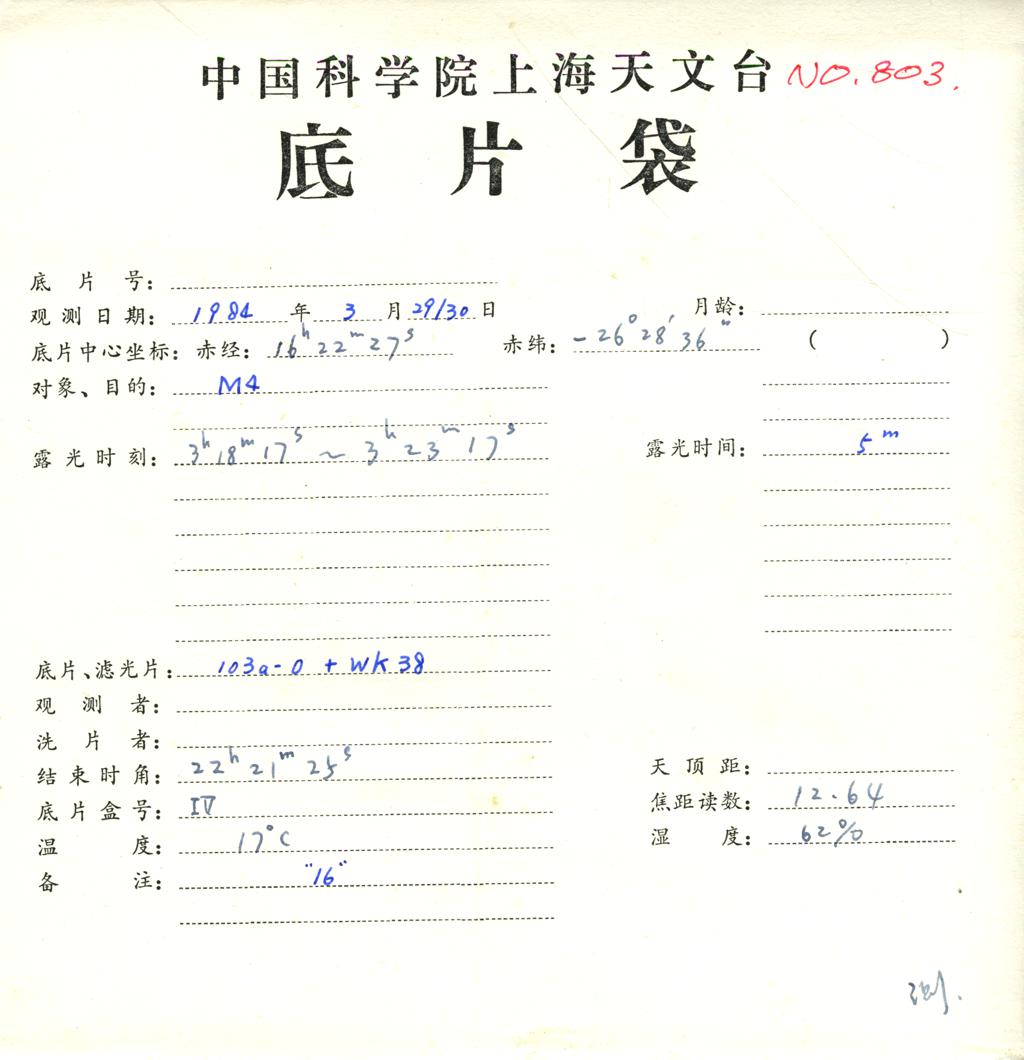 中国科学院上海天文台 NO.803.
底片袋
底片号：
观测日期： 1984 年 3 月 29/30 日 月龄：
底片中心坐标：赤经： 16h22m27s 赤纬： -26°28′36″ （ ）
对象、目的： M4
露光时刻： 3h18m17s ~ 3h23m17s 露光时间： 5m
底片、滤光片： 103a-O + WK38
观测者：
洗片者：
结束时角： 22h21m25s 天顶距：
底片盒号： IV 焦距读数： 12.64
温度： 17°C 湿度： 62%
备注： "16"